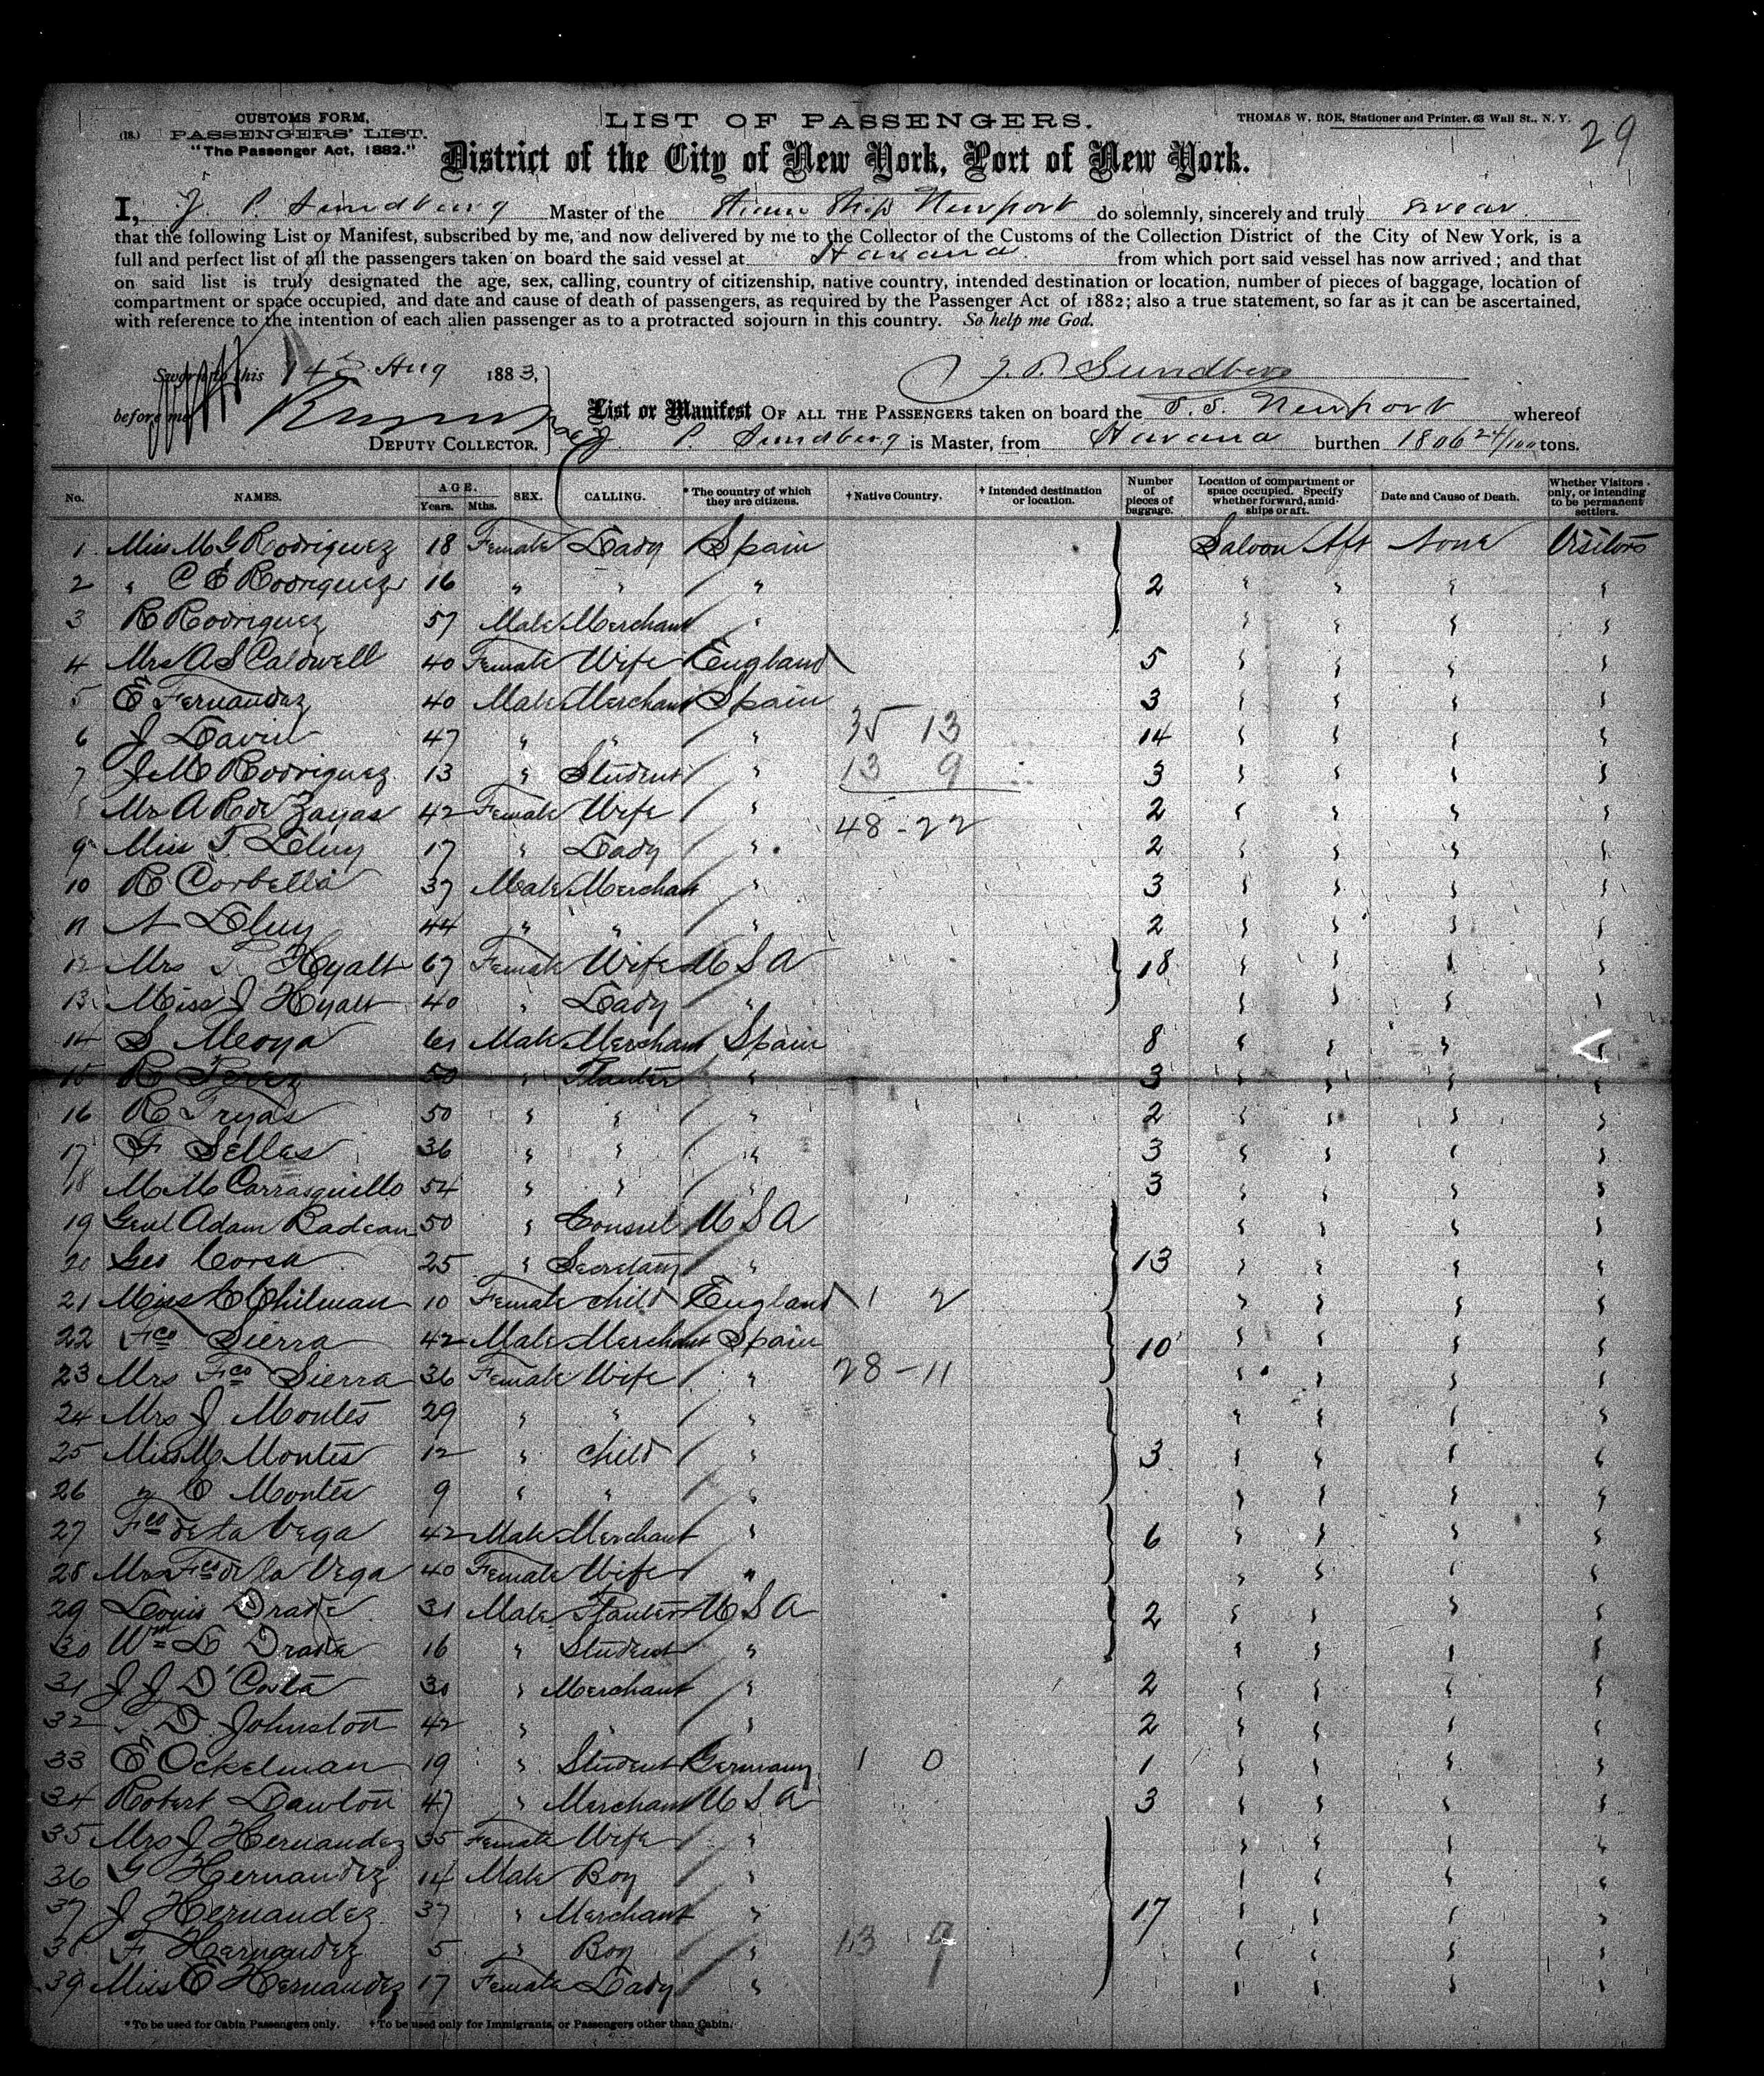 CUSTOMS FORM,
(18.) PASSENGERS' LIST.
"The Passenger Act, 1882."
LIST OF PASSENGERS.
THOMAS W. ROE, Stationer and Printer, 63 Wall St., N. Y.
29
District of the City of New York, Port of New York.
I, J. P. Sundberg Master of the Steam Ship Newport do solemnly, sincerely and truly swear
that the following List or Manifest, subscribed by me, and now delivered by me to the Collector of the Customs of the Collection District of the City of New York, is a
full and perfect list of all the passengers taken on board the said vessel at Havana from which port said vessel has now arrived; and that
on said list is truly designated the age, sex, calling, country of citizenship, native country, intended destination or location, number of pieces of baggage, location of
compartment or space occupied, and date and cause of death of passengers, as required by the Passenger Act of 1882; also a true statement, so far as it can be ascertained,
with reference to the intention of each alien passenger as to a protracted sojourn in this country. So help me God.
Sworn to this 14th Aug 1883,
J. P. Sundberg
before me
DEPUTY COLLECTOR.
List or Manifest OF ALL THE PASSENGERS taken on board the S. S. Newport whereof
J. P. Sundberg is Master, from Havana burthen 1806 24/100 tons.
No. NAMES. AGE. Years. Mths. SEX. CALLING. * The country of which they are citizens. † Native Country. † Intended destination or location. Number of pieces of baggage. Location of compartment or space occupied. Specify whether forward, amidships or aft. Date and Cause of Death. Whether Visitors only, or intending to be permanent settlers.
1 Miss M G Rodriguez 18 Female Lady Spain Saloon Aft None Visitors
2 " C E Rodriguez 16 " " " 2 " " " "
3 R Rodriguez 57 Male Merchant " " " " "
4 Mrs A S Caldwell 40 Female Wife England 5 " " " "
5 Fernandez 40 Male Merchant Spain 3 " " " "
6 J 47 " " " 35 13 14 " " " "
7 J M Rodriguez 13 " Student " 13 9 3 " " " "
8 A R de Zayas 42 Female Wife " 48-22 2 " " " "
9 Miss 17 " Lady " 2 " " " "
10 R Corbella 37 Male Merchant " 3 " " " "
11 44 " " " 2 " " " "
12 Mrs Hyatt 67 Female Wife U S A 18 " " " "
13 Miss J Hyatt 40 " Lady " " " " "
14 S Moya 61 Male Merchant Spain 8 " " " "
15 R Perez 50 " Planter " 3 " " " "
16 R 50 " " " 2 " " " "
17 F Selles 36 " " " 3 " " " "
18 M M Carrasquillo 54 " " " 3 " " " "
19 Genl Adam Badeau 50 " Consul U S A " " " "
20 Geo Corsa 25 " Secretary " 13 " " " "
21 Miss Chilman 10 Female child England 1 2 " " " "
22 Fco Sierra 42 Male Merchant Spain 10 " " " "
23 Mrs Fco Sierra 36 Female Wife " 28-11 " " " "
24 Mrs J Montes 29 " " " " " " "
25 Miss M Montes 12 " child " 3 " " " "
26 " C Montes 9 " " " " " " "
27 Fco de la Vega 42 Male Merchant " 6 " " " "
28 Mrs Fco de la Vega 40 Female Wife " " " " "
29 Louis Drake 31 Male Planter U S A 2 " " " "
30 Wm L Drake 16 " Student " " " " "
31 J J D'Costa 30 " Merchant " 2 " " " "
32 D. Johnston 42 " " " 2 " " " "
33 Ockelman 19 " Student Germany 1 0 1 " " " "
34 Robert Lawton 47 " Merchant U S A 3 " " " "
35 Mrs J Hernandez 35 Female Wife " " " " "
36 G Hernandez 14 Male Boy " " " " "
37 J Hernandez 37 " Merchant " 17 " " " "
38 F Hernandez 5 " Boy " 13 9 " " " "
39 Miss E Hernandez 17 Female Lady " " " " "
* To be used for Cabin Passengers only. † To be used only for Immigrants, or Passengers other than Cabin.